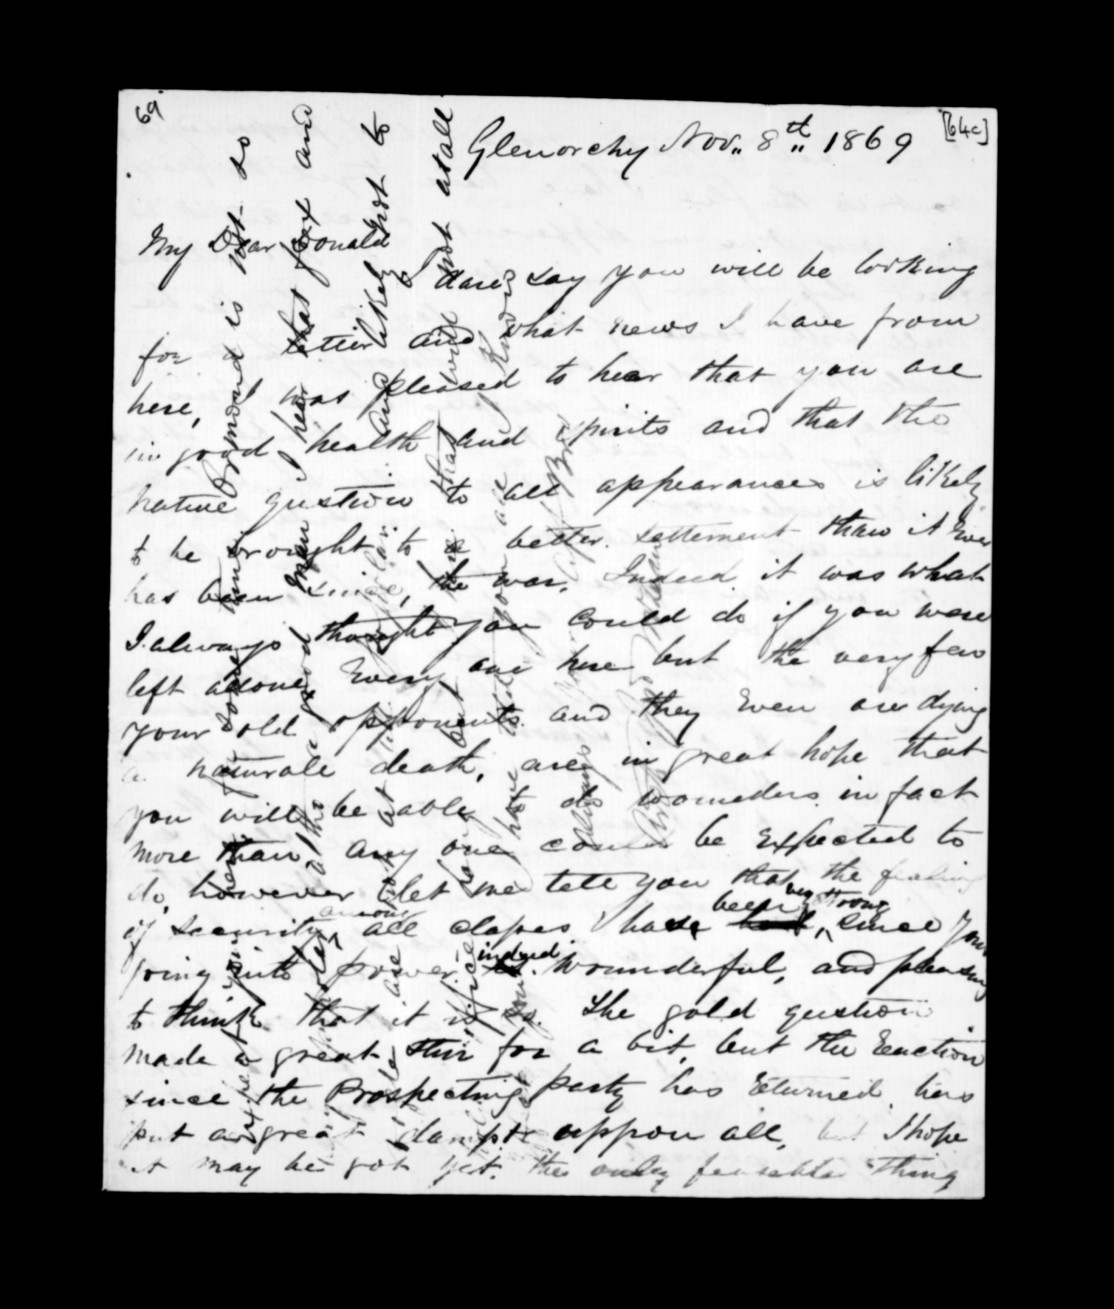 69
[64c]
Glenorchy Nov. 8th 1869
My Dear Donald
I dare say you will be looking
for letter and what news I have from
here, I was pleased to hear that you are
in good health and spirits and that the
native question to all appearances is likely
to be brought to a better settlement than it ever
has been since, the war, Indeed it was what
I always thought you could do if you were
left alone Every one here but the very few
your old opponents and they Even are dying
a naturale death, are in great hope that
you will be able to do wounders in fact
more than any one could be Expected to
do, however let me tele you that the feeling
of security among all classes have been very strong, since your
going into power, indeed wounderful, and pleasing
to think that it is so, The gold question
made a great stir for a bit, but the Reaction
since the Prospecting party has returned has
put a great damper uppon all, but I hope
it may be got yet. the only feasible thing
expect you here for some time Ormond is not to
a good man I hear that fox and
and likely not to
office long but that advice not at all
have told you all I know
Always yours